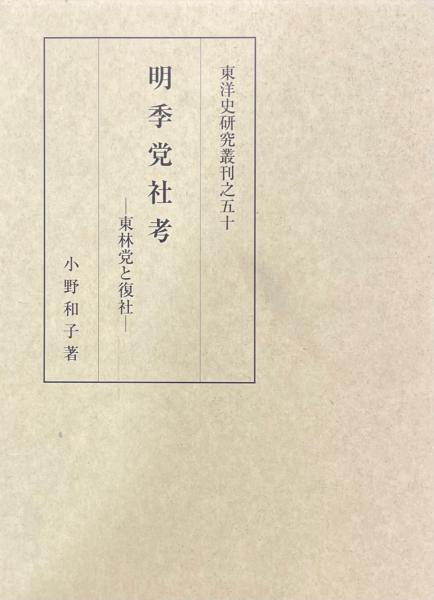 東洋史研究叢刊之五十
明季党社考
―東林党と復社―
小野和子著